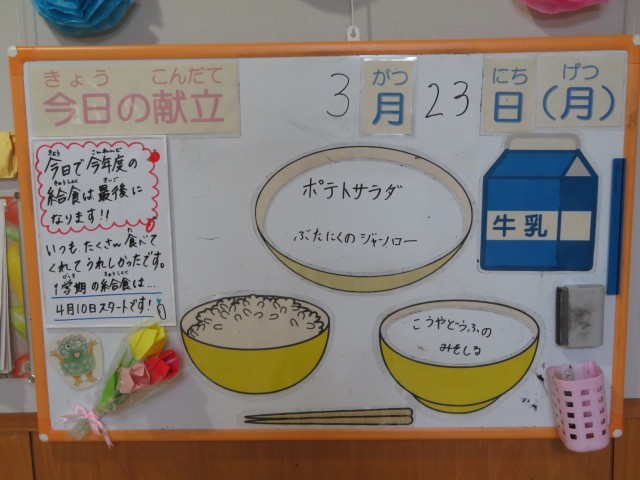 きょう こんだて
今日の献立
3 がつ 23 にち げつ
月 日 (月)
きょう こんねんど
今日で今年度の
きゅうしょく さいご
給食は、最後に
なります!!
いつも、たくさん食べて
くれてうれしかったです。
がっき きゅうしょく
1学期の給食は…
4月10日スタートです!
ポテトサラダ
ぶたにくのジャンロー
牛乳
こうやどうふの
みそしる